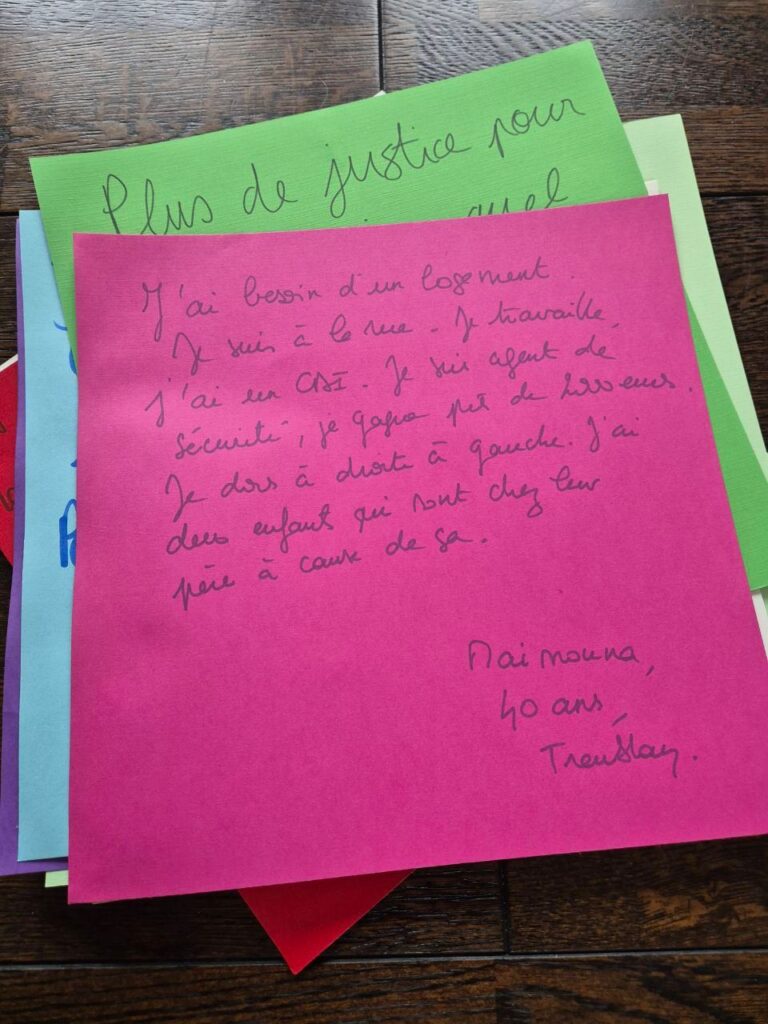 Plus de justice pour
quel
J'ai besoin d'un logement.
Je suis à la rue. Je travaille,
j'ai un CDI. Je suis agent de
sécurité, je gagne près de euros.
Je dors à droite à gauche. J'ai
deux enfants qui sont chez leur
père à cause de ça.
Maimouna,
40 ans,
Tremblay.